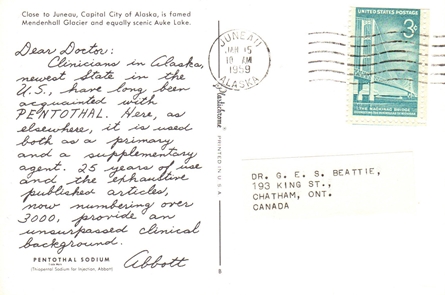 Close to Juneau, Capital City of Alaska, is famed
Mendenhall Glacier and equally scenic Auke Lake.
Dear Doctor:
Clinicians in Alaska,
newest State in the
U.S., have long been
acquainted with
PENTOTHAL. Here, as
elsewhere, it is used
both as a primary
and a supplementary
agent. 25 years of use
and the exhaustive
published articles,
now numbering over
3000, provide an
unsurpassed clinical
background.
Abbott
PENTOTHAL SODIUM
(Thiopental Sodium for Injection, Abbott)
PRINTED IN U.S.A.
JUNEAU
JAN 15
10 AM
1959
ALASKA
UNITED STATES POSTAGE
3¢
DR. G. E. S. BEATTIE,
193 KING ST.,
CHATHAM, ONT.
CANADA